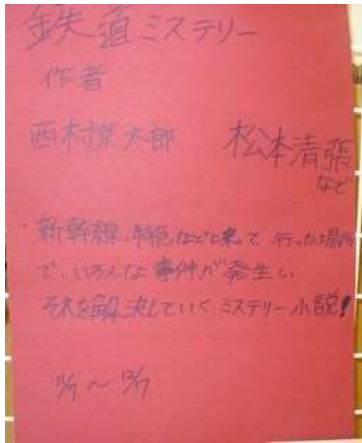 鉄道ミステリー
作者
西村京太郎 松本清張
など
新幹線、特急などに乗って行った場所
で、いろんな事件が発生し
それを解決していくミステリー小説!
11/7～12/7